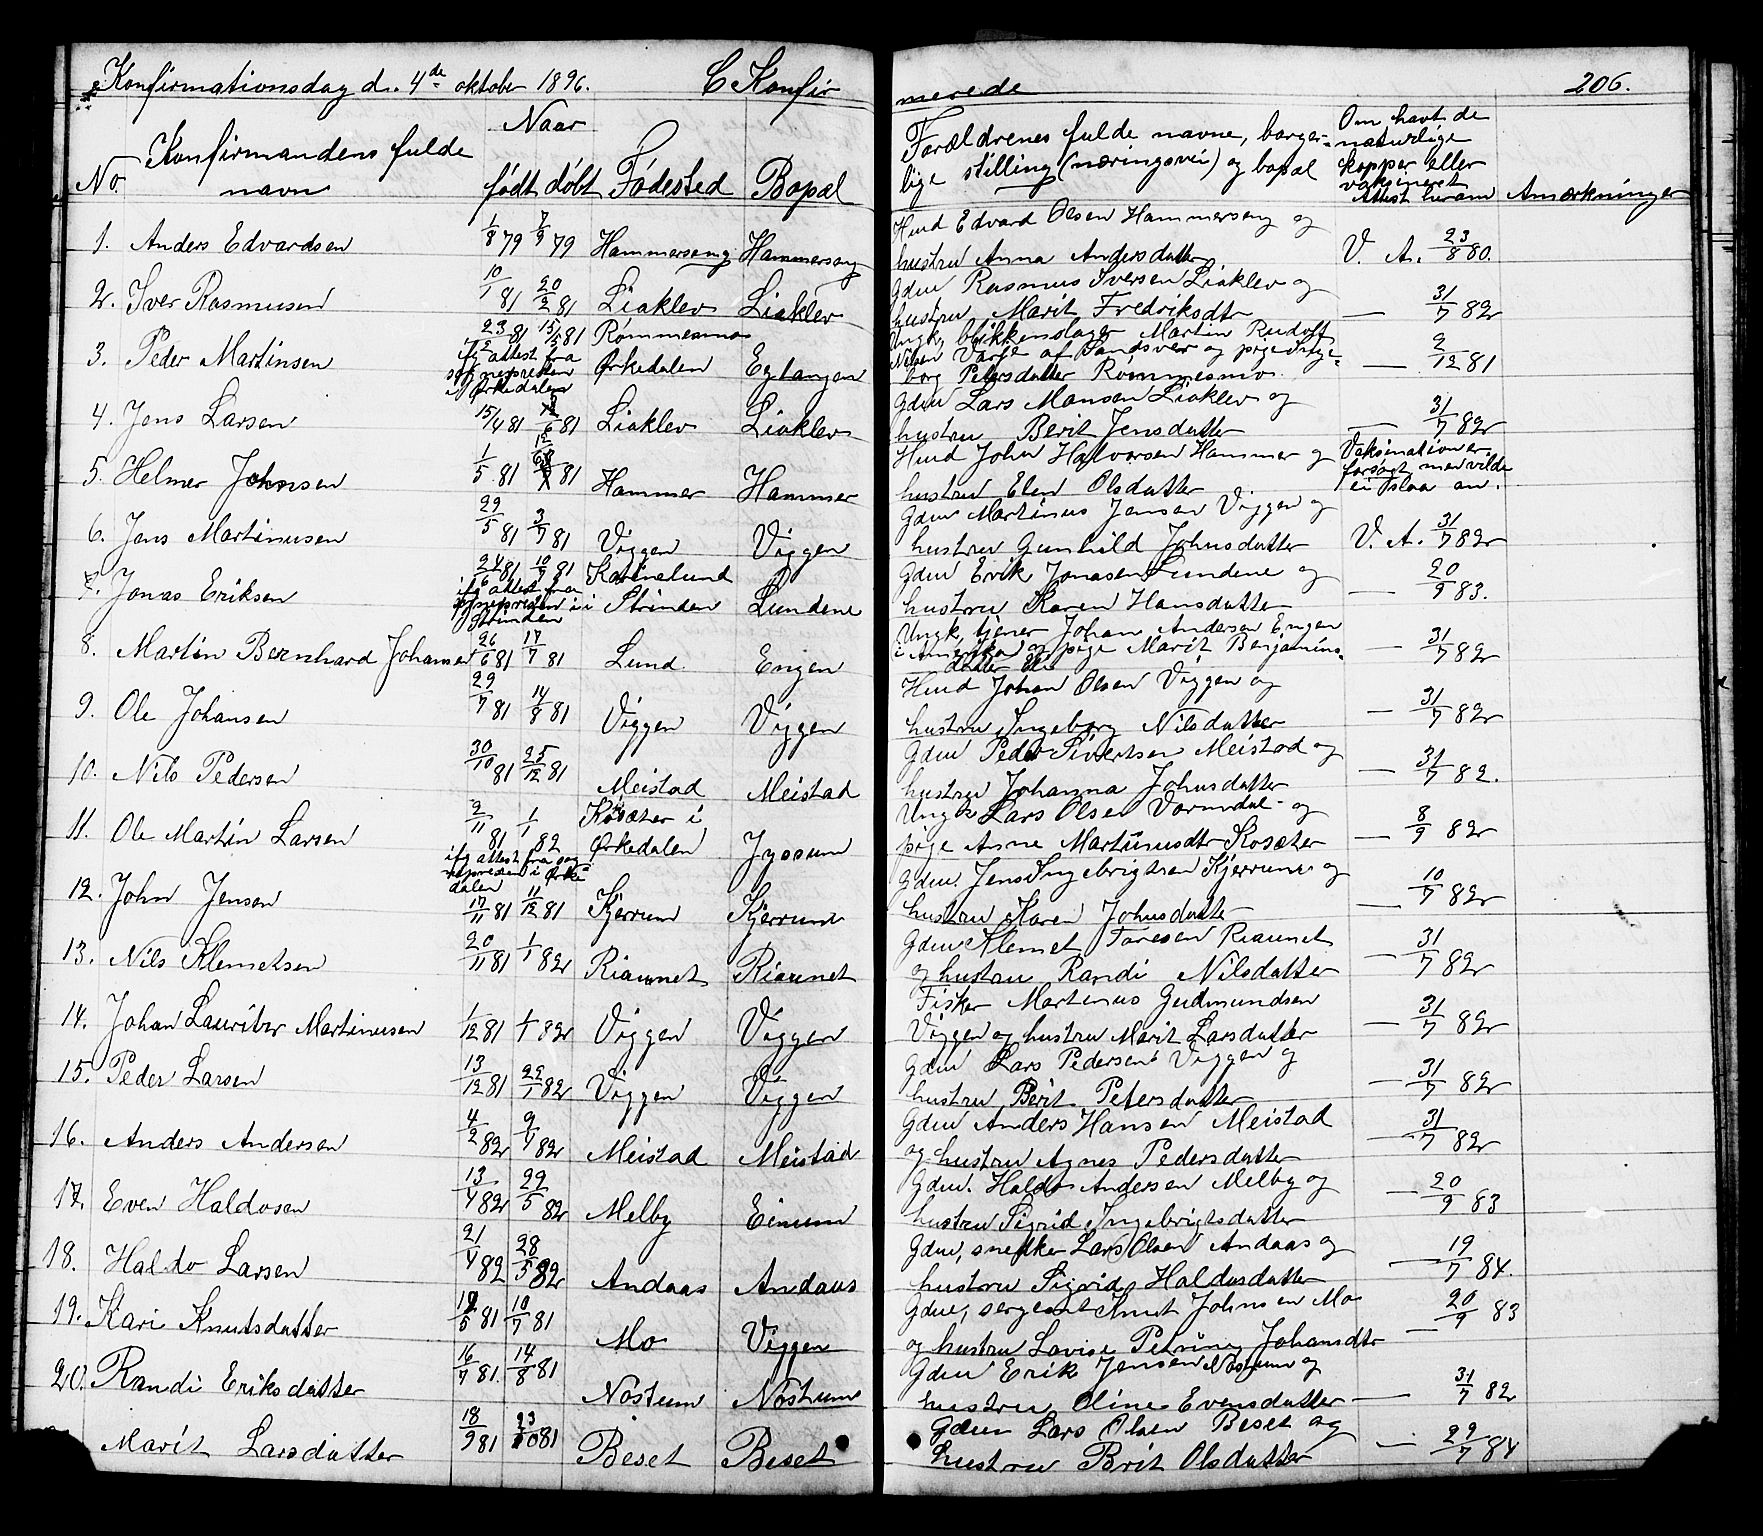 Konfirmationsdag d. 4de oktober 1896. C Konfir
merede 206.
No. Konfirmandens fulde navn
Naar
født døbt Fødested Bopæl
Forældrenes fulde navne, borger=
lige stilling (næringsvei) og bopæl
Om havt de
naturlige
kopper eller
vaksineret
Attest herom
Anmærkninger
1. Anders Edvardsen 1/8 79 7/9 79 Hammerseng Hammerseng
Husm Edvard Olsen Hammerseng og
hustru Anna Andersdatter V. A. 23/8 80.
2. Iver Rasmusen 10/1 81 20/2 81 Liaklev Liaklev
Gdm Rasmus Iversen Liaklev og
hustru Marit Fredriksdtr — 31/7 82
3. Peder Martinsen 23/2 81 15/5 81 Rømmesmo
ifg attest fra
sognepresten
i Ørkedalen
Ørkedalen Egtangen
Ungk. blikkenslager Martin Rudolf
Nilsen Varje af Sandsver og pige Inge=
borg Petersdatter Rømmesmo. — 2/12 81
4. Jens Larsen 15/4 81 81 Liaklev Liaklev
Gdm Lars Monsen Liaklev og
hustru Berit Jensdatter — 31/7 82
5. Helmer Johnsen 1/5 81 81 Hammer Hammer
Husm John Halvorsen Hammer og
hustru Elen Olsdatter
Vaksination er
forsøgt men vilde
ei slaa an.
6. Jens Martinusen 29/5 81 3/7 81 Viggen Viggen
Gdm Martinus Jensen Viggen og
hustru Gunhild Johnsdatter V. A. 31/7 82
7. Jonas Eriksen 24/6 81 10/7 81 Katinelund
ifg attest fra
sognepresten i
Strinden
i Strinden Lundene
Gdm Erik Jonasen Lundene og
hustru Karen Hansdatter — 20/9 83.
8. Martin Bernhard Johansen 26/6 81 17/7 81 Lund. Engen
Ungk, tjener Johan Andersen Engen
i Amerika og pige Marit Benjamins=
datter — 31/7 82
9. Ole Johansen 29/7 81 14/8 81 Viggen Viggen
Husm Johan Olsen Viggen og
hustru Ingeborg Nilsdatter — 31/7 82
10. Nils Pedersen 30/10 81 25/12 81 Meistad Meistad
Gdm Peder Sivertsen Meistad og
hustru Johanna Johnsdatter — 31/7 82.
11. Ole Martin Larsen 2/11 81 1/1 82 Kosæter i
Ørkedalen Jyssum
ifg attest fra sog=
nepresten i Ørke=
dalen
Ungk Lars Olsen Vormdal og
pige Anne Martinusdtr Kosæter — 8/9 82
12. John Jensen 17/11 81 11/12 81 Kjerrum Kjerrum
Gdm. Jens Ingebrigtsen Kjerrum og
hustru Karen Johnsdatter — 10/7 82
13. Nils Klemetsen 20/11 81 1/1 82 Riaunet Riaunet
Gdm Klemet Toresen Riaunet
og hustru Randi Nilsdatter — 31/7 82
14. Johan Lauritz Martinusen 1/12 81 1/1 82 Viggen Viggen
Fisker Martinus Gudmundsen
Viggen og hustru Marit Larsdatter — 31/7 82
15. Peder Larsen 13/12 81 22/1 82 Viggen Viggen
Gdm Lars Pedersen Viggen og
hustru Berit Petersdatter — 31/7 82
16. Anders Andersen 4/2 82 9/4 82 Meistad Meistad
Gdm Anders Hansen Meistad
og hustru Agnes Pedersdatter — 31/7 82
17. Even Haldosen 13/4 82 29/5 82 Melby Einum
Gdm. Haldo Andersen Melby og
hustru Sigrid Ingebrigtsdatter — 20/9 83
18. Haldo Larsen 21/4 82 28/5 82 Andaas Andaas
Gdm, snedker Lars Olsen Andaas og
hustru Sigrid Haldosdatter — 19/7 84.
19. Kari Knutsdatter 81 10/7 81 Mo Viggen
Gdm, sergeant Knut Johnsen Mo
og hustru Lovise Petrine Johansdtr — 20/9 83
20. Randi Eriksdatter 16/7 81. 14/8 81 Nostum Nostrum
Gdm Erik Jensen Nostum og
hustru Oline Evensdatter — 31/7 82
Marit Larsdatter 18/9 81 81 Beset Beset
Gdm Lars Olsen Beset og
hustru Brit Olsdatter — 29/7 84